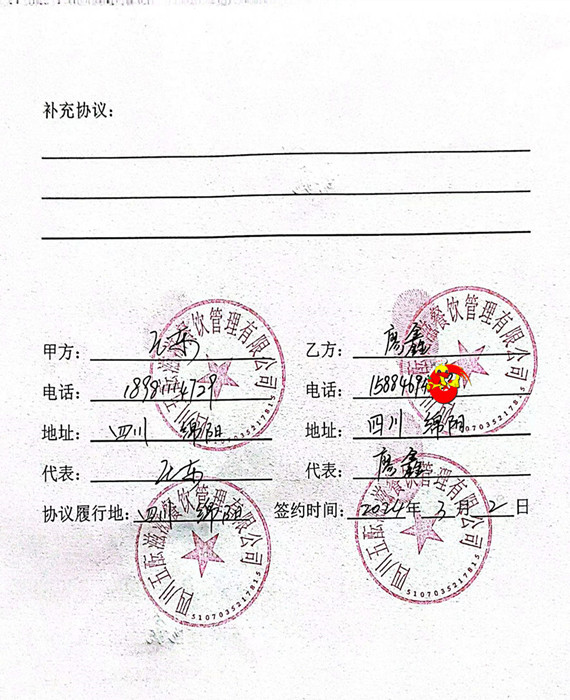 补充协议：
甲方：
乙方：唐鑫
电话：
电话：
地址：四川 绵阳
地址：四川 绵阳
代表：
代表：唐鑫
协议履行地：四川 绵阳
签约时间：2024年3月2日
餐饮管理有限公司
5107035217815
餐饮管理有限公司
5107035217815
四川五酝滋滋餐饮管理有限公司
5107035217815
四川五酝滋滋餐饮管理有限公司
5107035217815